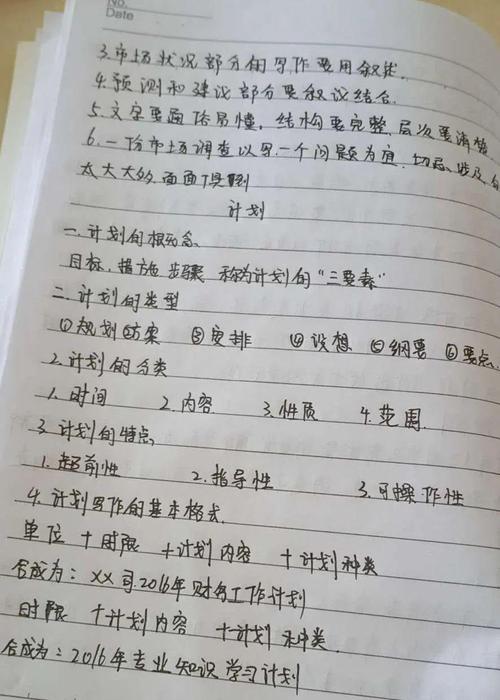 No.
Date
3.市场状况部分的写作要用叙述.
4.预测和建议部分要叙议结合.
5.文字要通俗易懂，结构要完整.层次要清楚
6.一份市场调查以写一个问题为宜.切忌.涉及
太大大的.面面俱到
计划
一.计划的概念.
目标.措施.步骤 称为计划的"三要素"
二.计划的类型
①规划 方案 ③安排 ④设想 ⑤纲要 ⑥要点.
2.计划的分类
1.时间 2.内容 3.性质 4.范围.
3.计划的特点
1.超前性 2.指导性 3.可操作性
4.计划写作的基本格式.
单位 + 时限 + 计划内容 + 计划种类
合成为：XX司.2016年财务工作计划
时限 + 计划内容 + 计划种类.
合成为：2016年专业知识学习计划